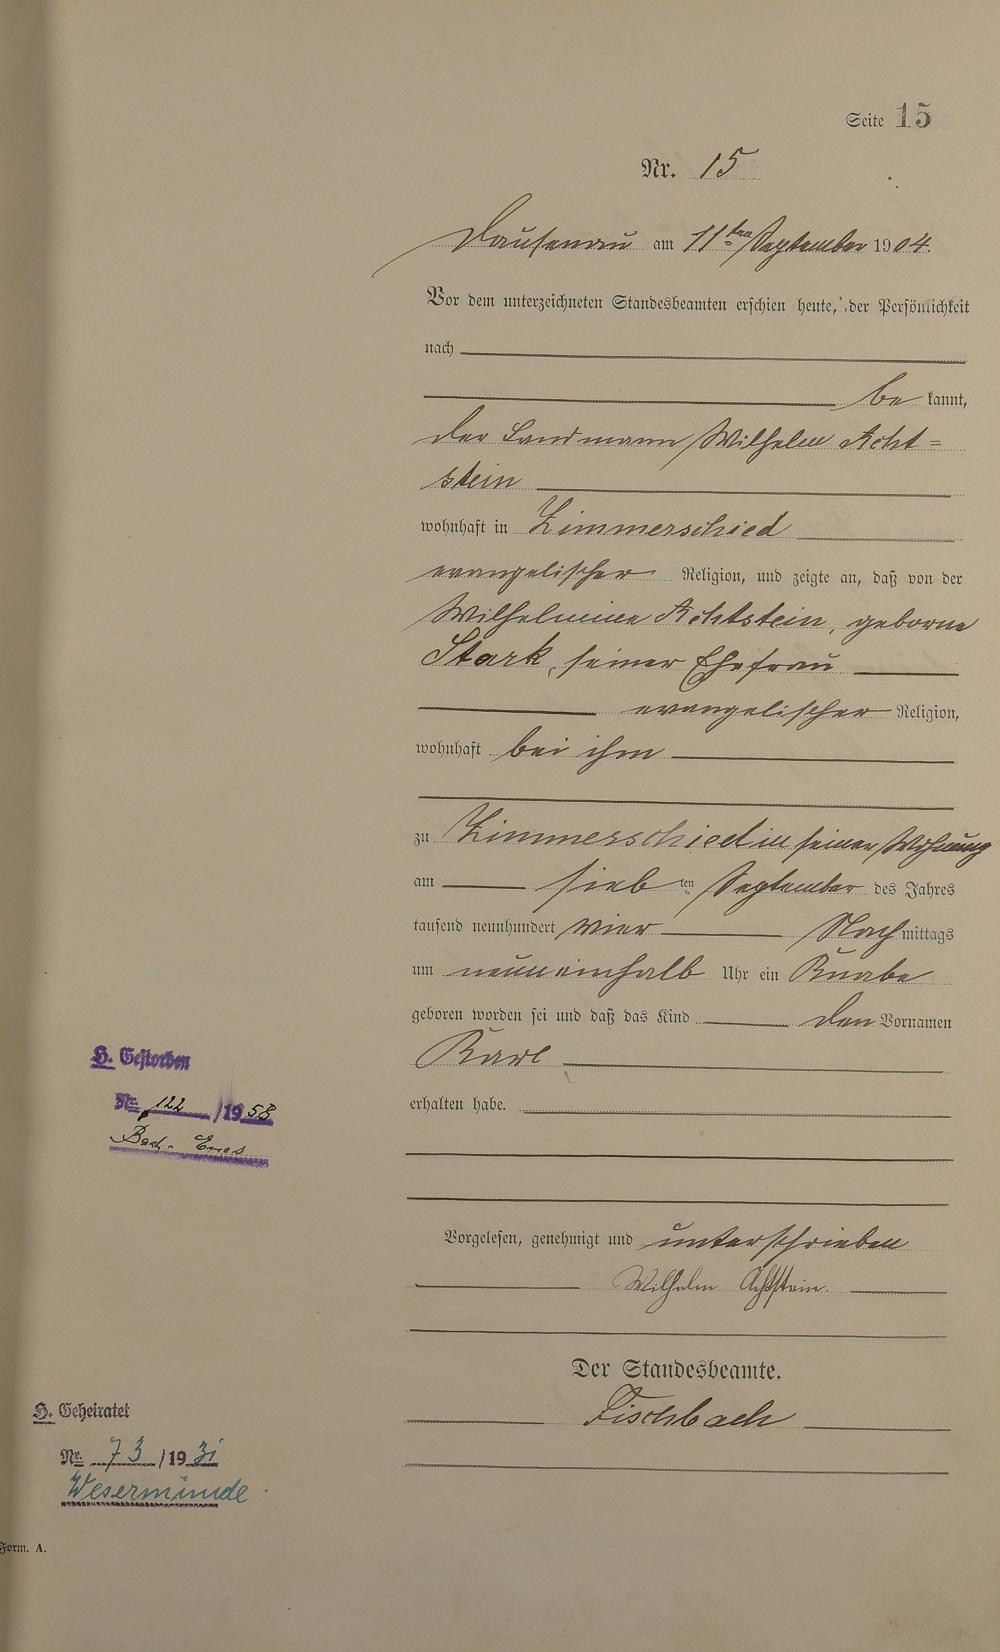 Seite 15
Nr. 15
Dausenau am 11ten September 1904.
Vor dem unterzeichneten Standesbeamten erschien heute, der Persönlichkeit
nach
be kannt,
der Landmann Wilhelm Acht=
stein
wohnhaft in Zimmerschied
evangelischer Religion, und zeigte an, daß von der
Wilhelmine Achtstein, geborne
Stark, seiner Ehefrau
evangelischer Religion,
wohnhaft bei ihm
zu Zimmerschied in seiner Wohnung
am siebten September des Jahres
tausend neunhundert vier Nachmittags
um neuneinhalb Uhr ein Knabe
geboren worden sei und daß das Kind den Vornamen
Karl
erhalten habe.
Vorgelesen, genehmigt und unterschrieben
Wilhelm Achtstein.
Der Standesbeamte.
Fischbach
H. Gestorben
Nr. 122 /1958
Bad-Ems
H. Geheiratet
Nr. 73 /1931
Wesermünde
Form. A.